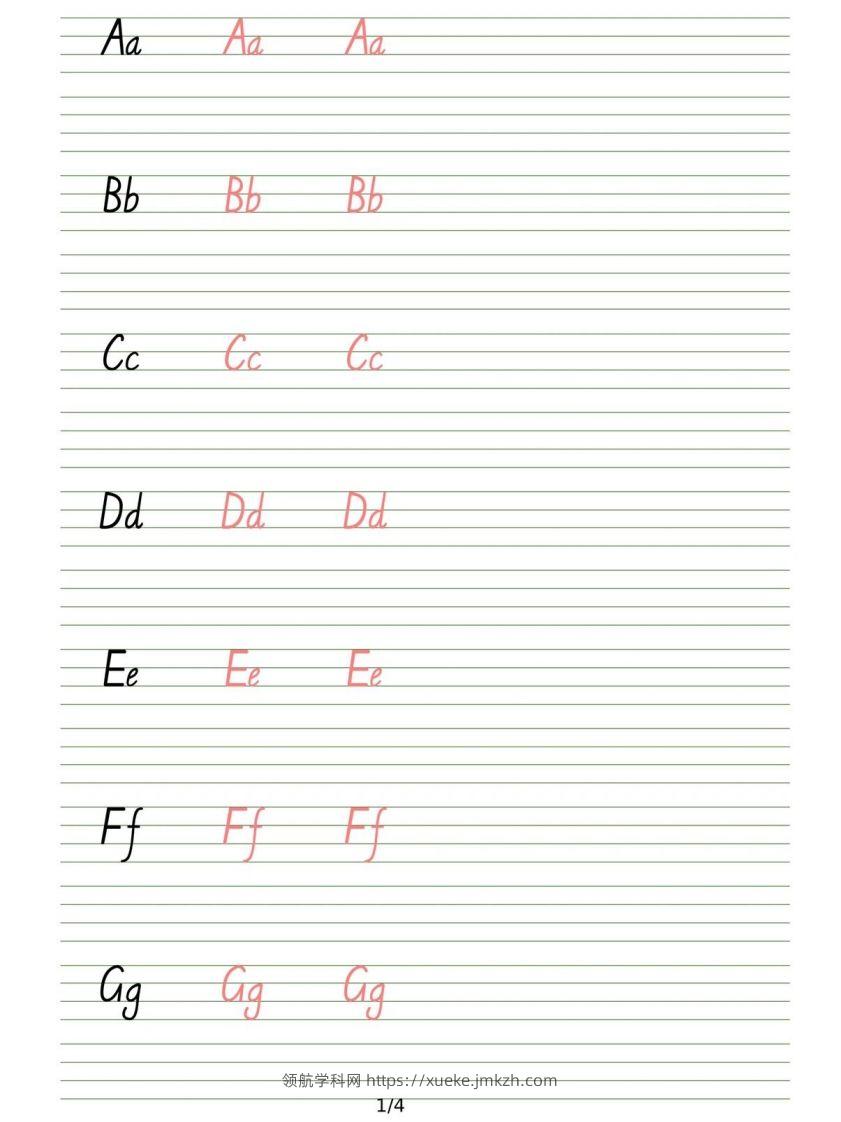 Aa Aa Aa
Bb Bb Bb
Cc Cc Cc
Dd Dd Dd
Ee Ee Ee
Ff Ff Ff
Gg Gg Gg
领航学科网 https://xueke.jmkzh.com
1/4